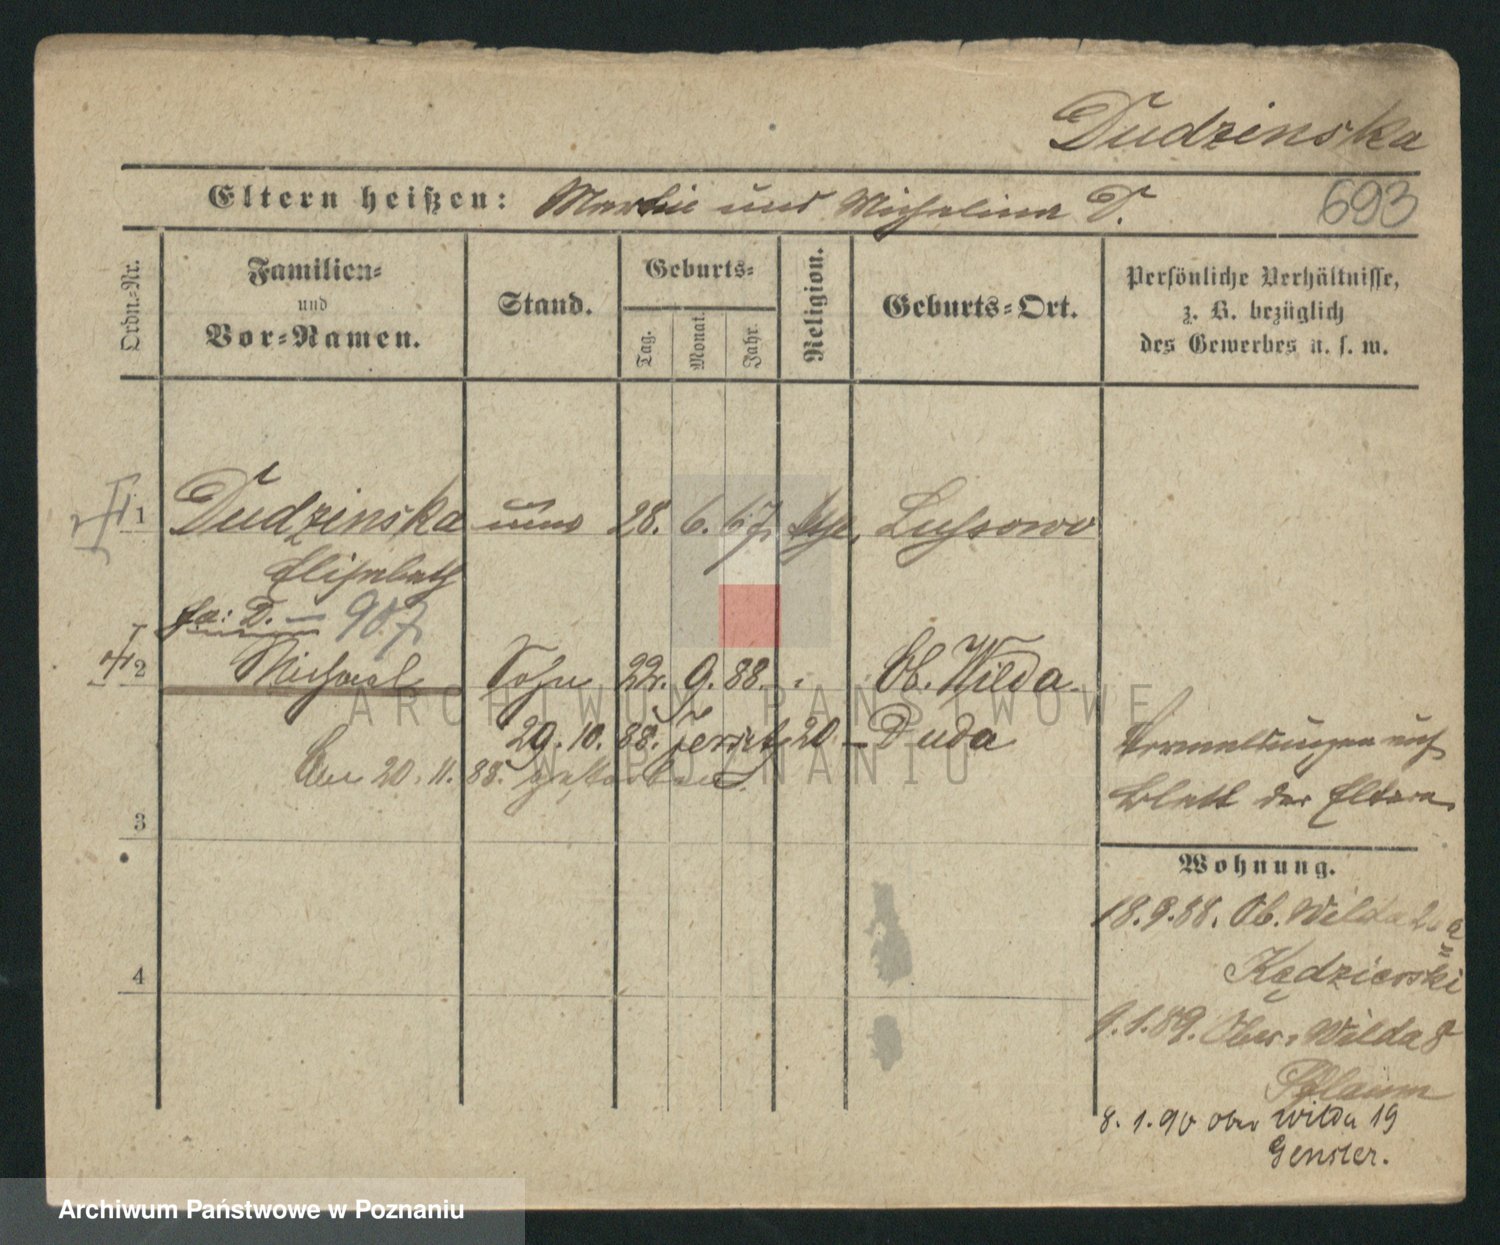 Dudzinska
Eltern heißen: Martin und Michalina D.
693
Ordn.-Nr.
Familien-
und
Vor-Namen.
Stand.
Geburts-
Tag.
Monat.
Jahr.
Religion.
Geburts-Ort.
Persönliche Verhältnisse,
z. B. bezüglich
des Gewerbes u. s. w.
1 Dudzinska 28. 6. 67. Lussowo
Elisabeth
D. — 907
2 Michael Sohn 22. 9. 88. Ob. Wilda.
29. 10. 88. Jersitz 20 – Duda
Am 20. 11. 88. gestorben.
Blatt der Eltern
3
Wohnung.
18. 9. 88. Ob. Wilda
Kędzierski
4
1. 89. Ober-Wilda 8
Pflaum
8. 1. 90 Ober Wilda 19
Gensler.
ARCHIWUM PAŃSTWOWE
W POZNANIU
Archiwum Państwowe w Poznaniu